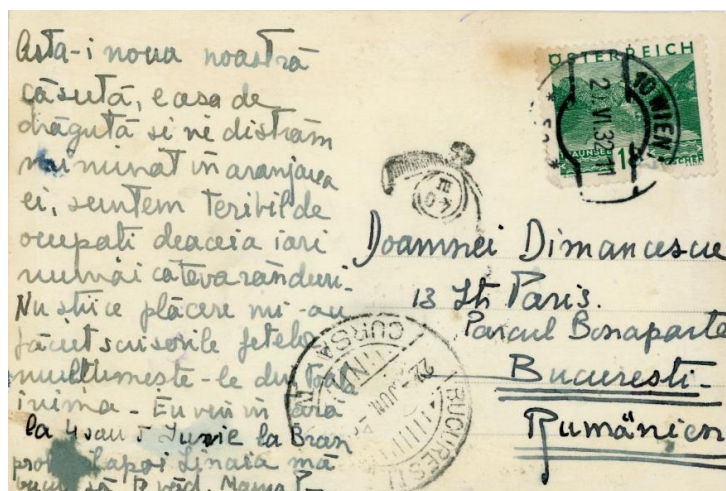 Asta-i noua noastră
căsuță, e asa de
drăguță si ne distrăm
minunat în aranjarea
ei, suntem teribil de
ocupati deaceia iari
numai cateva randuri.
Nu stii ce plăcere mi-au
făcut scrisorile fetelor
multumeste-le din toată
inima - Eu vin în tara
la 4 sau 5 Iunie la Bran
apoi Sinaia mă
să văd. Mama
ÖSTERREICH
10 WIEN
VI.32
Doamnei Dimancescu
13 Str Paris.
Parcul Bonaparte
Bucuresti-
Rumänien
CURSA
JUN.
BUCURESTI